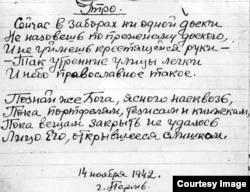 Утро.
Сейчас в заборах ни одной доски
Не назовешь по-прежнему доскою,
И не уймешь крестящейся руки —
— Так утренние улицы легки
И небо православное такое.
Познай же Бога, ясного насквозь,
Пока портретам, записям и книжкам,
Пока вещам закрыть не удалось
Лицо Его, открывшееся слишком.
14 ноября 1942.
г. Пермь.
Courtesy Image